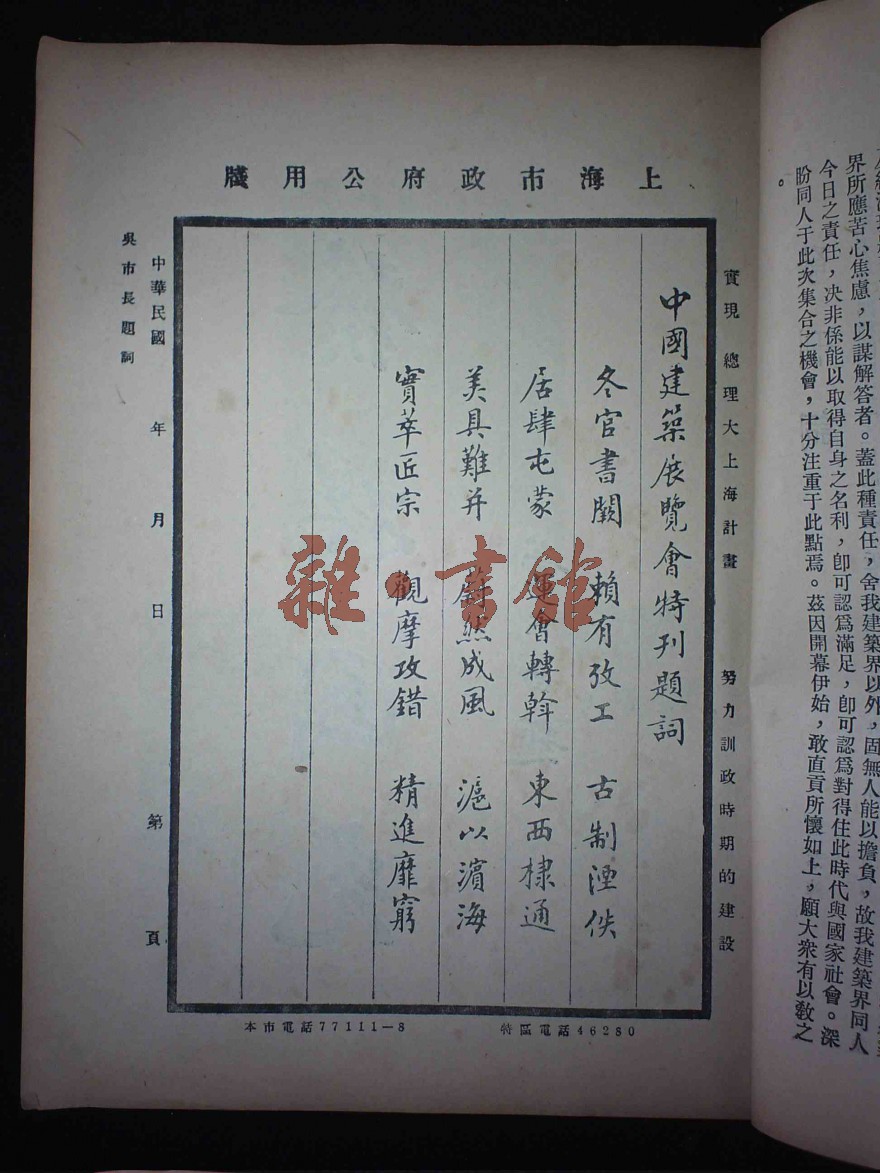 界所應苦心焦慮，以謀解答者。蓋此種責任，舍我建築界以外，固無人能以擔負，故我建築界同人
今日之責任，决非係能以取得自身之名利，卽可認爲滿足，卽可認爲對得住此時代與國家社會。深
盼同人于此次集合之機會，十分注重于此點焉。茲因開幕伊始，敢直貢所懷如上，願大衆有以敎之
。
上海市政府公用牋
實現 總理大上海計畫 努力訓政時期的建設
中國建築展覽會特刊題詞
冬官書闕 賴有攷工 古制湮佚
居肆屯蒙 運會轉斡 東西棣通
美具難并 蔚然成風 滬以濱海
實萃匠宗 觀摩攻錯 精進靡窮
中華民國 年 月 日 第 頁
吳市長題詞
特區電話46280
本市電話77111—8
雜·書館